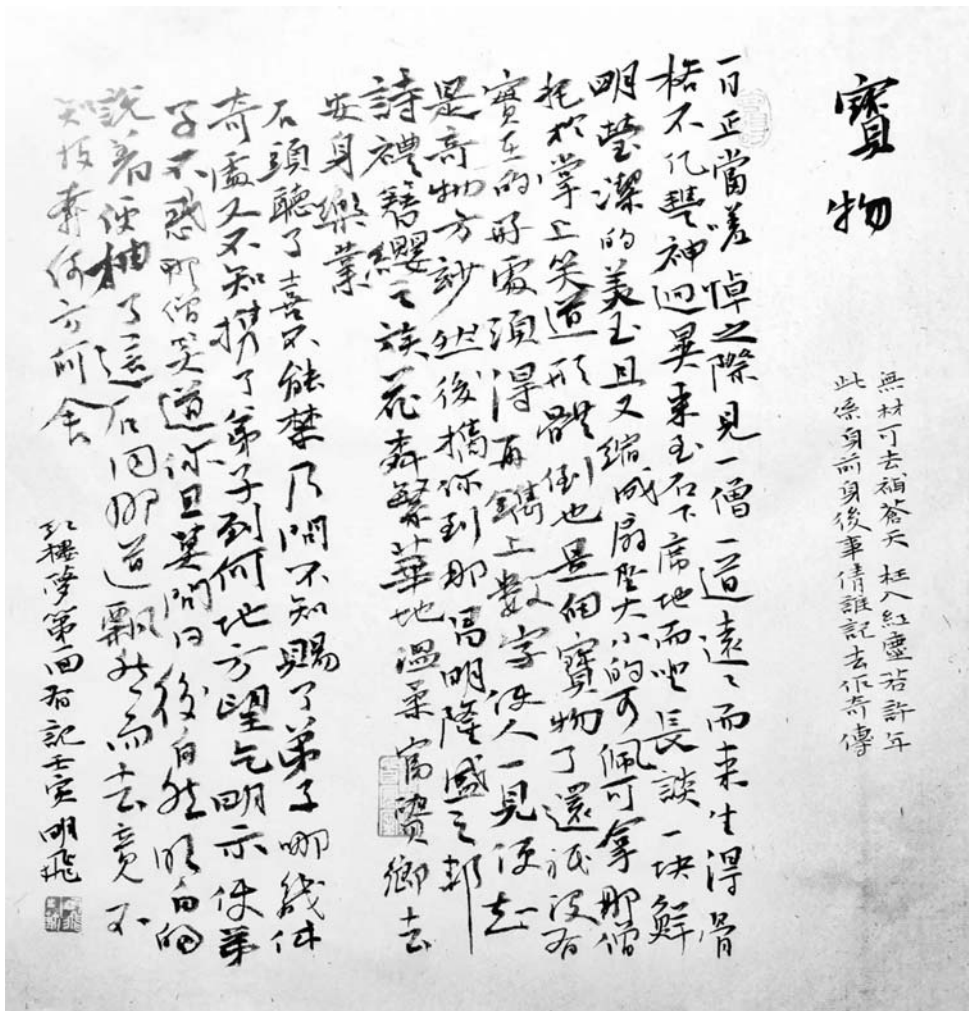 寶物
無材可去補蒼天 枉入紅塵若許年
此係身前身後事倩誰記去作奇傳
一日正當嗟悼之際見一僧一道遠〻而來生得骨
格不凡豐神迥異來至石下席地而坐長談一块鮮
明瑩潔的美玉且又縮成扇墜大小的可佩可拿那僧
托於掌上笑道形體倒也是個寶物了還祇沒有
實在的好處須得再鐫上數字使人一見便知
是奇物方妙然後携你到那昌明隆盛之邦
詩禮簪纓之族花柳繁華地溫柔富貴鄉去
安身樂業
石頭聽了喜不能禁乃問不知賜了弟子哪幾件
奇處又不知携了弟子到何地方望乞明示使弟
子不惑那僧笑道你且莫問日後自然明白的
說着便袖了這石同那道飄然而去竟不
知投奔何方何舍
紅樓夢第一回有記壬寅明飛